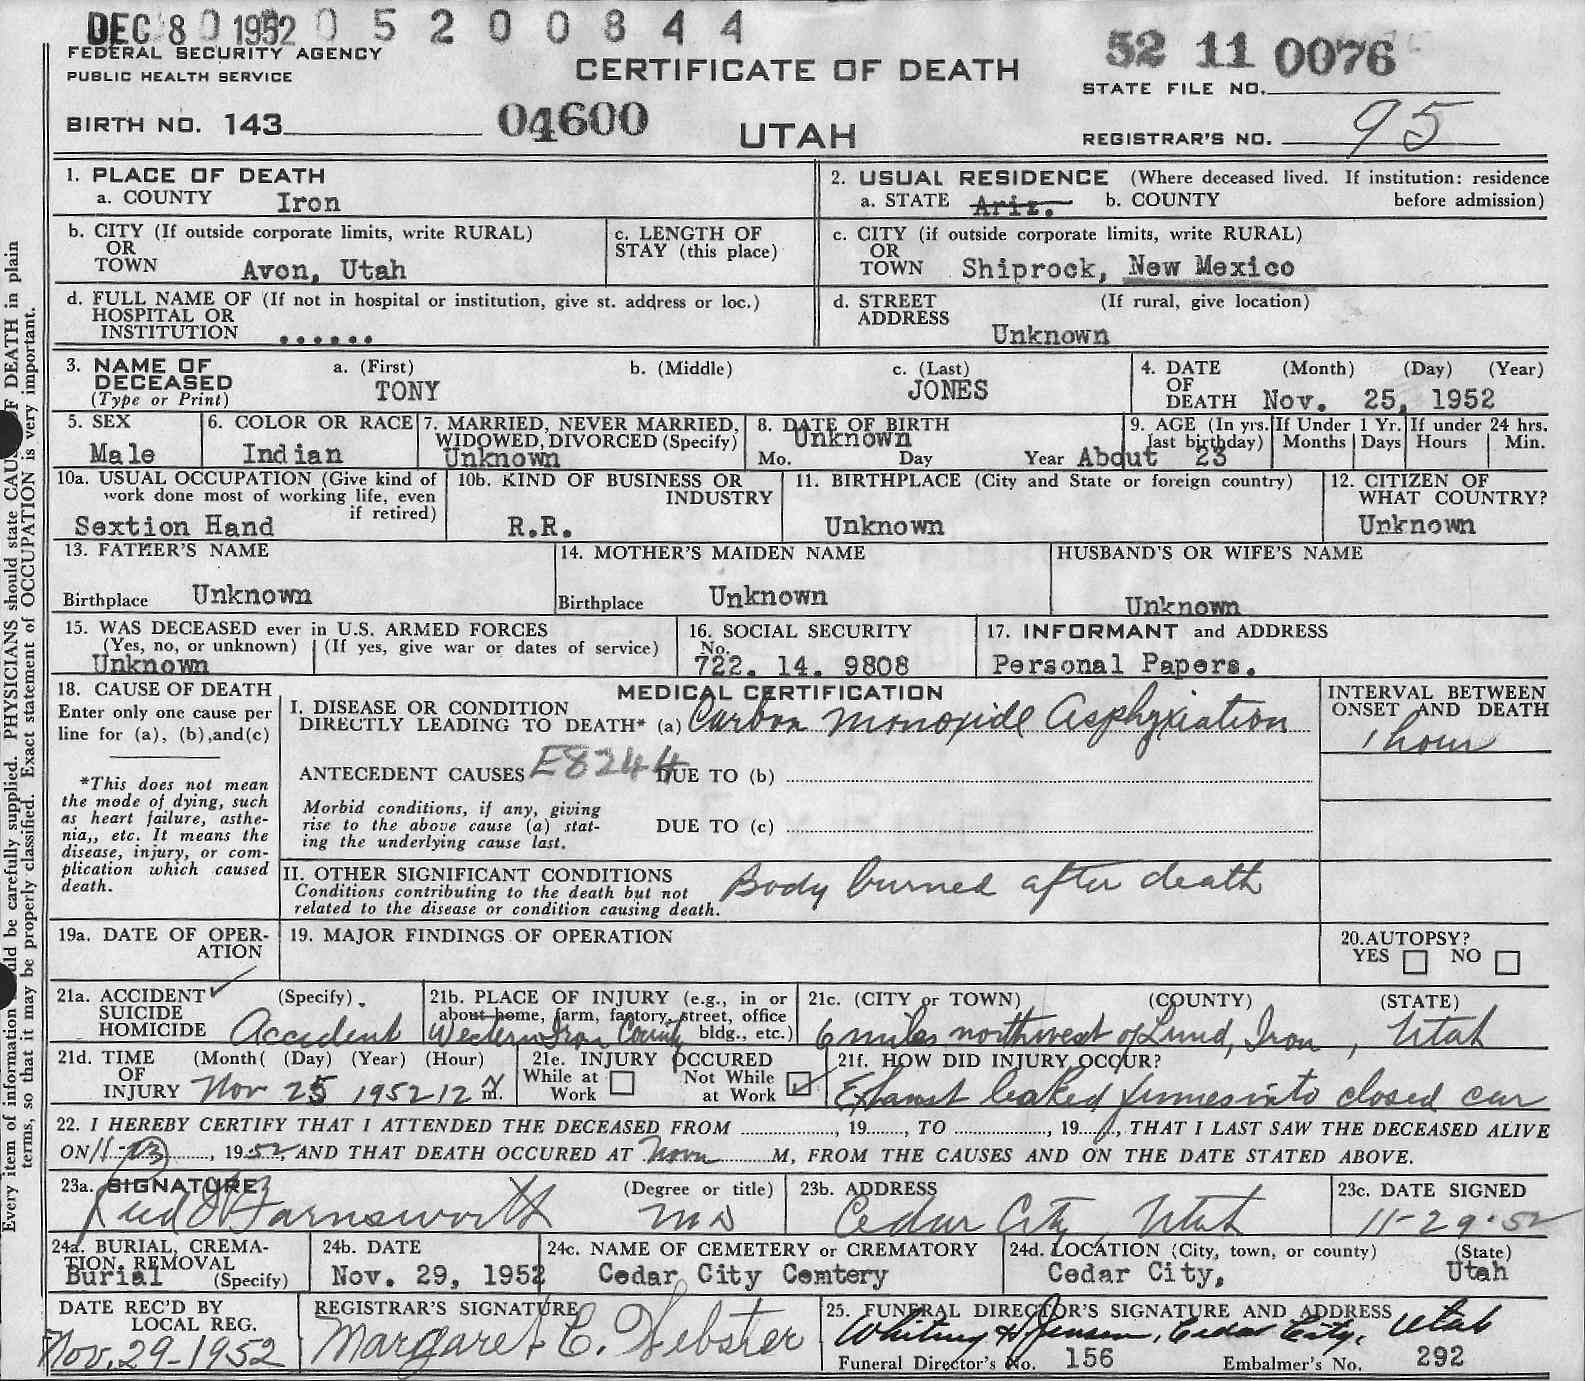 DEC 8 1952 0 5 2 0 0 8 4 4
FEDERAL SECURITY AGENCY
PUBLIC HEALTH SERVICE
CERTIFICATE OF DEATH
52 11 0076
STATE FILE NO.
BIRTH NO. 143
04600
UTAH
REGISTRAR'S NO. 95
1. PLACE OF DEATH
a. COUNTY Iron
2. USUAL RESIDENCE (Where deceased lived. If institution: residence before admission)
a. STATE Ariz. b. COUNTY
b. CITY (If outside corporate limits, write RURAL)
OR
TOWN Avon, Utah
c. LENGTH OF
STAY (this place)
c. CITY (if outside corporate limits, write RURAL)
OR
TOWN Shiprock, New Mexico
d. FULL NAME OF (If not in hospital or institution, give st. address or loc.)
HOSPITAL OR
INSTITUTION ......
d. STREET (If rural, give location)
ADDRESS
Unknown
3. NAME OF DECEASED
(Type or Print)
a. (First) b. (Middle) c. (Last)
TONY JONES
4. DATE (Month) (Day) (Year)
OF
DEATH Nov. 25, 1952
5. SEX
Male
6. COLOR OR RACE
Indian
7. MARRIED, NEVER MARRIED,
WIDOWED, DIVORCED (Specify)
Unknown
8. DATE OF BIRTH
Unknown
Mo. Day Year
9. AGE (In yrs. last birthday)
About 23
If Under 1 Yr.
Months Days
If under 24 hrs.
Hours Min.
10a. USUAL OCCUPATION (Give kind of
work done most of working life, even
if retired)
Sextion Hand
10b. KIND OF BUSINESS OR
INDUSTRY
R.R.
11. BIRTHPLACE (City and State or foreign country)
Unknown
12. CITIZEN OF
WHAT COUNTRY?
Unknown
13. FATHER'S NAME
Birthplace Unknown
14. MOTHER'S MAIDEN NAME
Birthplace Unknown
HUSBAND'S OR WIFE'S NAME
Unknown
15. WAS DECEASED ever in U.S. ARMED FORCES
(Yes, no, or unknown) (If yes, give war or dates of service)
Unknown
16. SOCIAL SECURITY
No.
722. 14. 9808
17. INFORMANT and ADDRESS
Personal Papers.
18. CAUSE OF DEATH
Enter only one cause per
line for (a), (b),and(c)
*This does not mean
the mode of dying, such
as heart failure, asthe-
nia,, etc. It means the
disease, injury, or com-
plication which caused
death.
MEDICAL CERTIFICATION
I. DISEASE OR CONDITION
DIRECTLY LEADING TO DEATH* (a) Carbon monoxide Asphyxiation
INTERVAL BETWEEN
ONSET AND DEATH
1 hour
ANTECEDENT CAUSES E8244 DUE TO (b)
Morbid conditions, if any, giving
rise to the above cause (a) stat-
ing the underlying cause last.
DUE TO (c)
II. OTHER SIGNIFICANT CONDITIONS
Conditions contributing to the death but not
related to the disease or condition causing death.
Body burned after death
19a. DATE OF OPER-
ATION
19. MAJOR FINDINGS OF OPERATION
20. AUTOPSY?
YES NO
21a. ACCIDENT (Specify).
SUICIDE
HOMICIDE Accident
21b. PLACE OF INJURY (e.g., in or
about home, farm, factory, street, office
bldg., etc.)
Western Iron County
21c. (CITY or TOWN) (COUNTY) (STATE)
6 miles northwest of Lund, Iron, Utah
21d. TIME (Month( (Day) (Year) (Hour)
OF
INJURY Nov 25 1952 12 m.
21e. INJURY OCCURED
While at Work Not While at Work ✓
21f. HOW DID INJURY OCCUR?
Exhaust leaked fumes into closed car
22. I HEREBY CERTIFY THAT I ATTENDED THE DECEASED FROM ......, 19...., TO ......, 19...., THAT I LAST SAW THE DECEASED ALIVE
ON 11-23, 1952, AND THAT DEATH OCCURED AT Noon M, FROM THE CAUSES AND ON THE DATE STATED ABOVE.
23a. SIGNATURE (Degree or title)
Farnsworth MD
23b. ADDRESS
Cedar City, Utah
23c. DATE SIGNED
11-29-52
24a. BURIAL, CREMA-
TION, REMOVAL
Burial (Specify)
24b. DATE
Nov. 29, 1952
24c. NAME OF CEMETERY or CREMATORY
Cedar City Cemtery
24d. LOCATION (City, town, or county) (State)
Cedar City, Utah
DATE REC'D BY
LOCAL REG.
Nov. 29-1952
REGISTRAR'S SIGNATURE
Margaret C. Webster
25. FUNERAL DIRECTOR'S SIGNATURE AND ADDRESS
Whiting & Jensen, Cedar City, Utah
Funeral Director's No. 156 Embalmer's No. 292
Every item of information should be carefully supplied. PHYSICIANS should state CAUSE OF DEATH in plain
terms, so that it may be properly classified. Exact statement of OCCUPATION is very important.